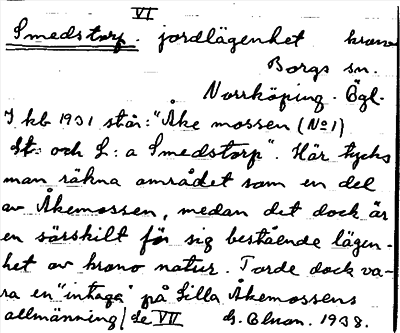 VI
Smedstorp. jordlägenhet krono
Borgs sn.
Norrköping. Ögl.
I kb 1931 står: "Åke mossen (No 1)
St: och L: a Smedstorp". Här tycks
man räkna området som en del
av Åkemossen, medan det dock är
en särskilt för sig bestående lägen-
het av krono natur. Torde dock va-
ra en "intaga" på Lilla Åkemossens
allmänning / se VII G. Elman. 1938.